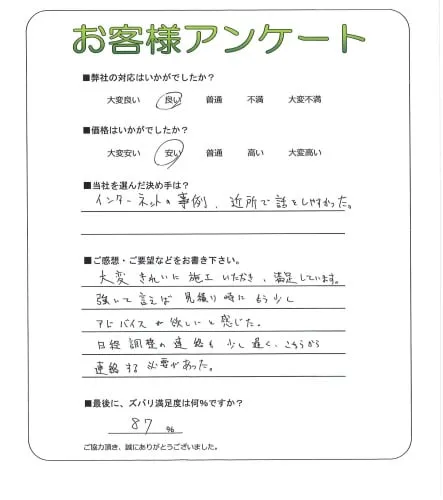 お客様アンケート
■弊社の対応はいかがでしたか？
大変良い 良い 普通 不満 大変不満
■価格はいかがでしたか？
大変安い 安い 普通 高い 大変高い
■当社を選んだ決め手は？
インターネットの事例、近所で話をしやすかった。
■ご感想・ご要望などをお書き下さい。
大変きれいに施工いただき、満足しています。
強いて言えば見積り時にもう少し
アドバイスが欲しいと感じた。
日程調整の連絡も少し遅く、こちらから
連絡する必要があった。
■最後に、ズバリ満足度は何％ですか？
87 %
ご協力頂き、誠にありがとうございました。